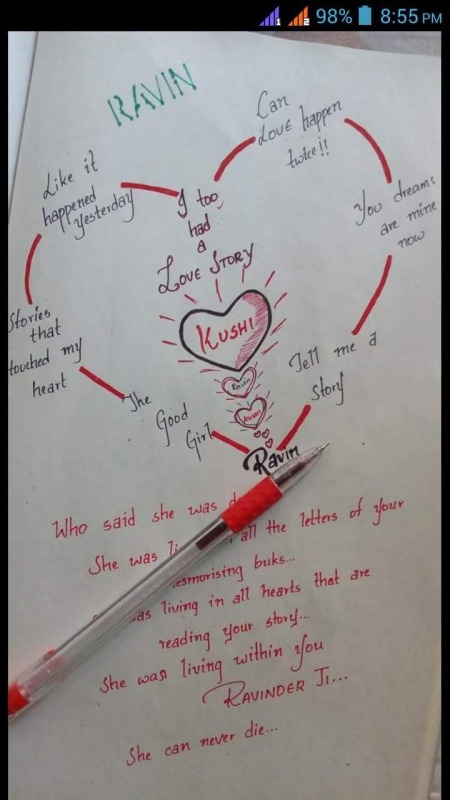 98% 8:55 PM
RAVIN
Can
LOVE happen
twice!!
Like it
happened
yesterday
I too
had
a
LOVE STORY
You dreams
are mine
now
Stories
that
touched my
heart
KUSHI
Ravin
KUSHI
Tell me a
Story
The
Good
Girl
Ravin
Who said she was
She was all the letters of your
buks...
living in all hearts that are
reading your story...
She was living within you
RAVINDER JI...
She can never die...